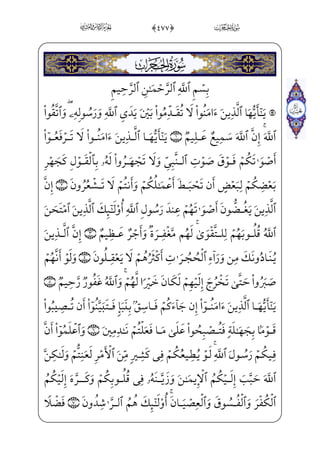 سُورَةُ الحُجُرَات ﴿٤٧٧﴾ الجُزْءُ السَّادِسُ وَالعِشْرُونَ
سُورَةُ الحُجُرَاتِ
بِسْمِ ٱللَّهِ ٱلرَّحْمَٰنِ ٱلرَّحِيمِ
۞ يَٰٓأَيُّهَا ٱلَّذِينَ ءَامَنُوا۟ لَا تُقَدِّمُوا۟ بَيْنَ يَدَىِ ٱللَّهِ وَرَسُولِهِۦ ۖ وَٱتَّقُوا۟
ٱللَّهَ ۚ إِنَّ ٱللَّهَ سَمِيعٌ عَلِيمٌ ﴿١﴾ يَٰٓأَيُّهَا ٱلَّذِينَ ءَامَنُوا۟ لَا تَرْفَعُوٓا۟
أَصْوَٰتَكُمْ فَوْقَ صَوْتِ ٱلنَّبِىِّ وَلَا تَجْهَرُوا۟ لَهُۥ بِٱلْقَوْلِ كَجَهْرِ
بَعْضِكُمْ لِبَعْضٍ أَن تَحْبَطَ أَعْمَٰلُكُمْ وَأَنتُمْ لَا تَشْعُرُونَ ﴿٢﴾ إِنَّ
ٱلَّذِينَ يَغُضُّونَ أَصْوَٰتَهُمْ عِندَ رَسُولِ ٱللَّهِ أُو۟لَٰٓئِكَ ٱلَّذِينَ ٱمْتَحَنَ
ٱللَّهُ قُلُوبَهُمْ لِلتَّقْوَىٰ ۚ لَهُم مَّغْفِرَةٌ وَأَجْرٌ عَظِيمٌ ﴿٣﴾ إِنَّ ٱلَّذِينَ
يُنَادُونَكَ مِن وَرَآءِ ٱلْحُجُرَٰتِ أَكْثَرُهُمْ لَا يَعْقِلُونَ ﴿٤﴾ وَلَوْ أَنَّهُمْ
صَبَرُوا۟ حَتَّىٰ تَخْرُجَ إِلَيْهِمْ لَكَانَ خَيْرًا لَّهُمْ ۚ وَٱللَّهُ غَفُورٌ رَّحِيمٌ ﴿٥﴾
يَٰٓأَيُّهَا ٱلَّذِينَ ءَامَنُوٓا۟ إِن جَآءَكُمْ فَاسِقٌۢ بِنَبَإٍ فَتَبَيَّنُوٓا۟ أَن تُصِيبُوا۟
قَوْمًۢا بِجَهَٰلَةٍ فَتُصْبِحُوا۟ عَلَىٰ مَا فَعَلْتُمْ نَٰدِمِينَ ﴿٦﴾ وَٱعْلَمُوٓا۟ أَنَّ
فِيكُمْ رَسُولَ ٱللَّهِ ۚ لَوْ يُطِيعُكُمْ فِى كَثِيرٍ مِّنَ ٱلْأَمْرِ لَعَنِتُّمْ وَلَٰكِنَّ
ٱللَّهَ حَبَّبَ إِلَيْكُمُ ٱلْإِيمَٰنَ وَزَيَّنَهُۥ فِى قُلُوبِكُمْ وَكَرَّهَ إِلَيْكُمُ
ٱلْكُفْرَ وَٱلْفُسُوقَ وَٱلْعِصْيَانَ ۚ أُو۟لَٰٓئِكَ هُمُ ٱلرَّٰشِدُونَ ﴿٧﴾ فَضْلًا